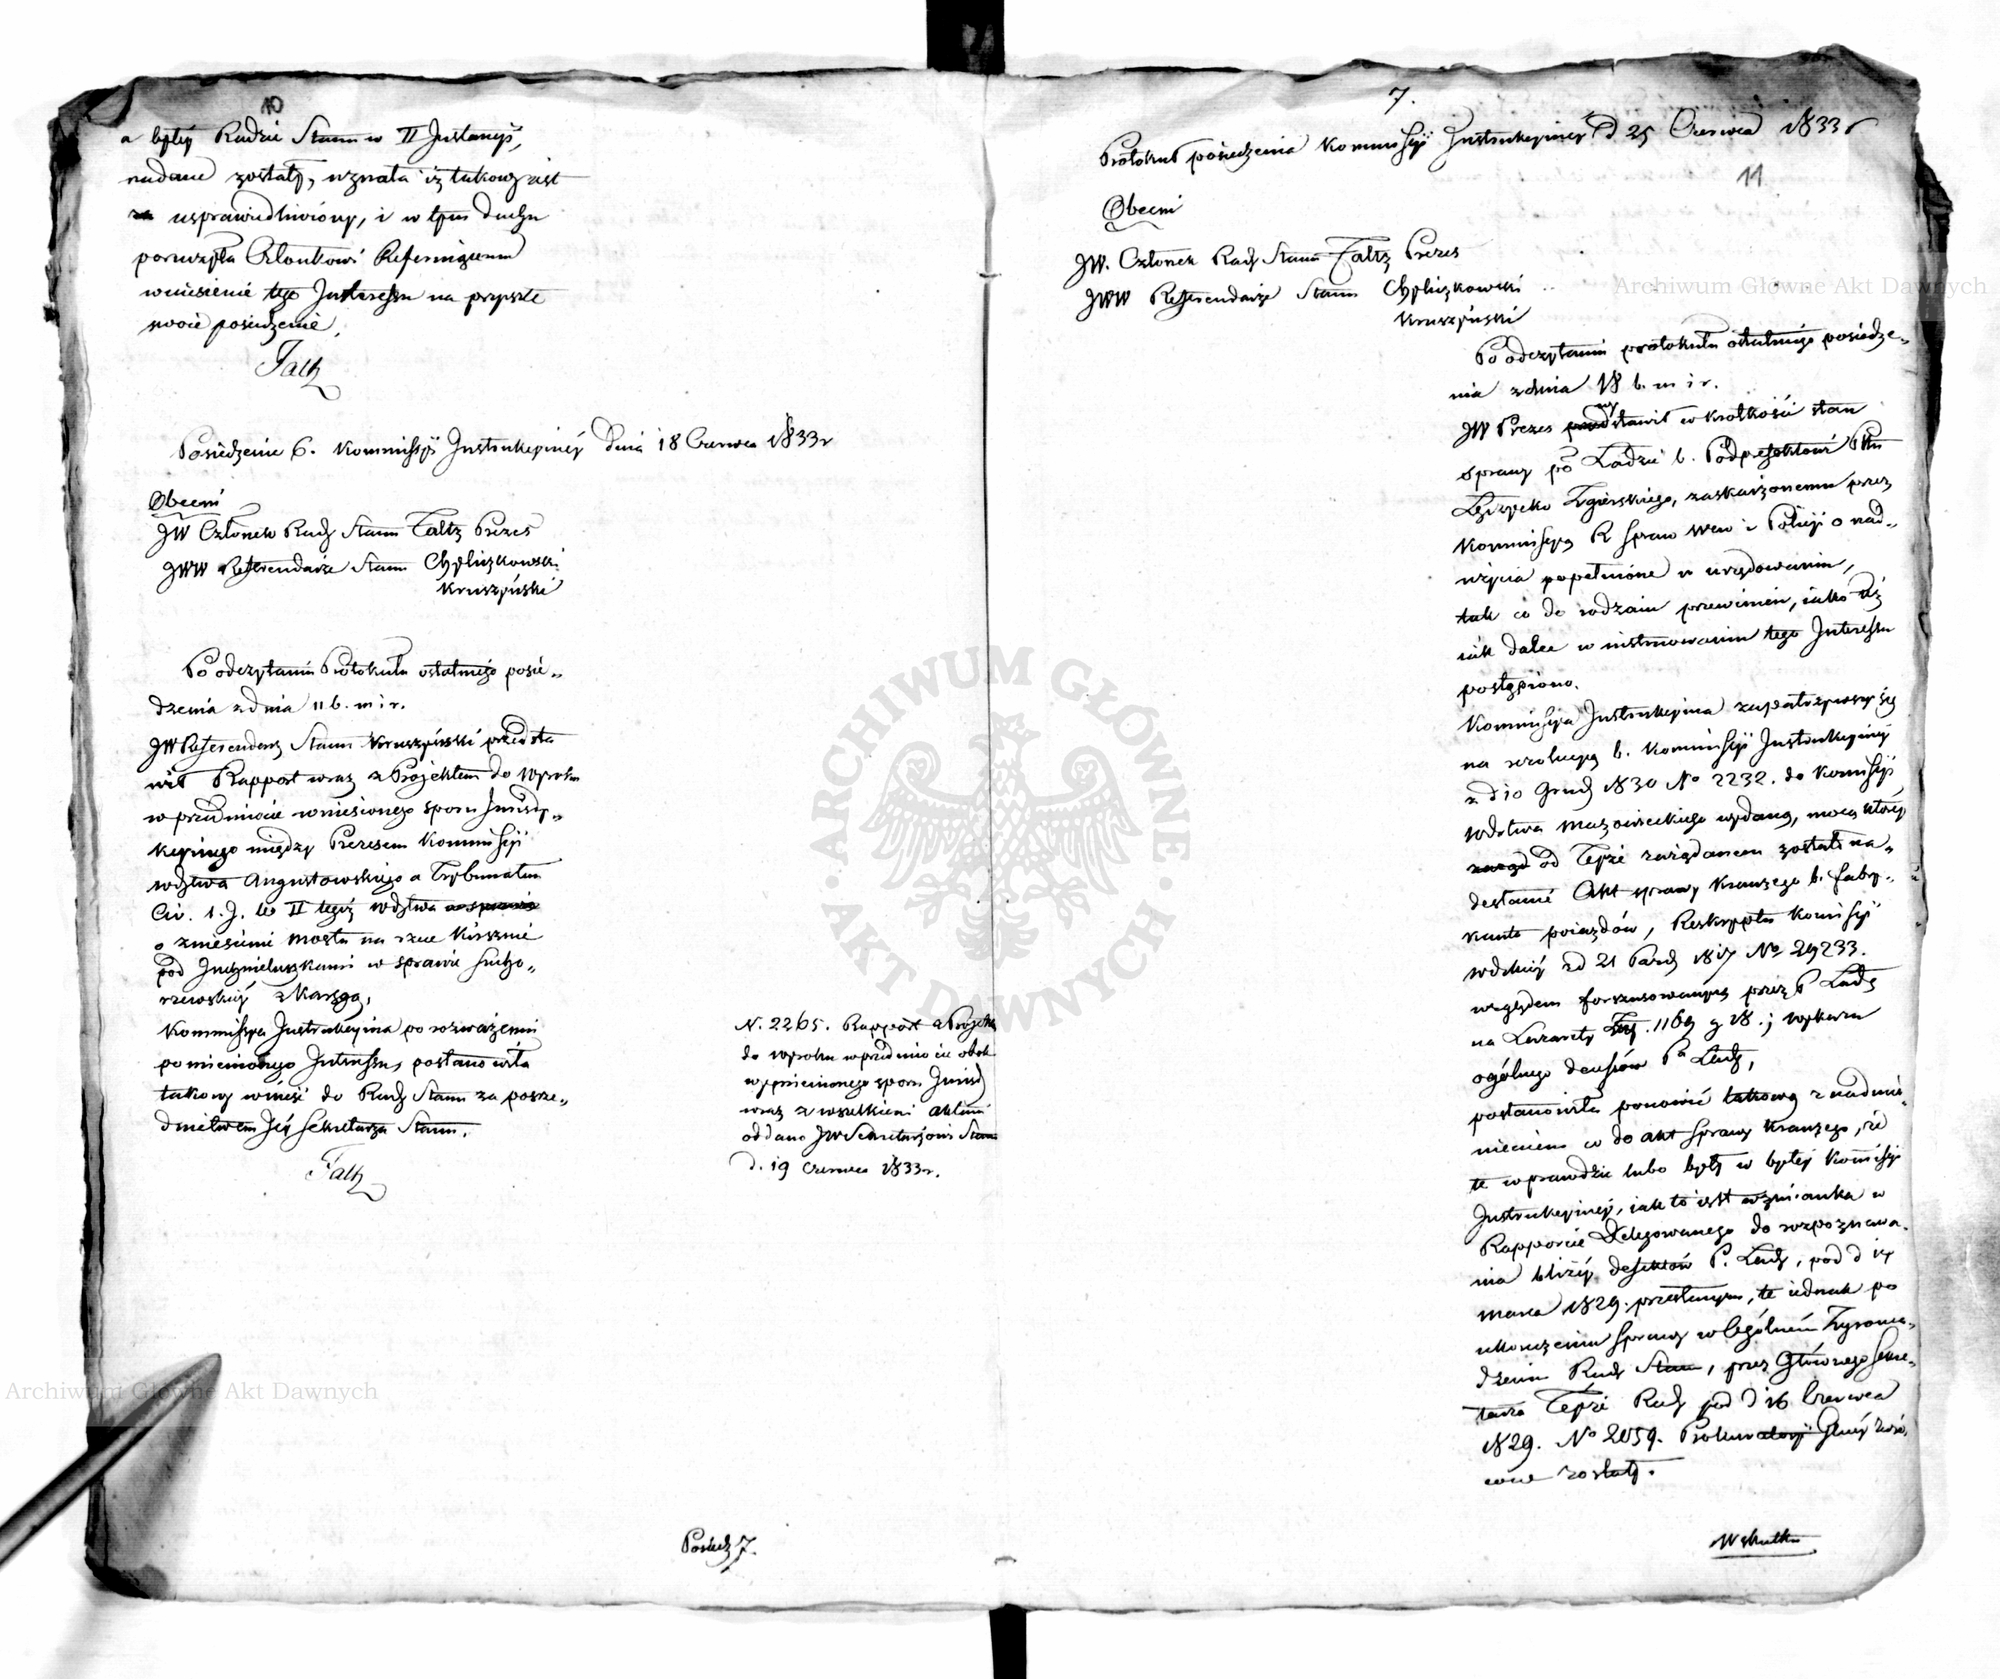 10
a byłéy Radzie Stanu w II Instancyi,
nadane zostały, uznała iż takowy iest
usprawiedliwiony, i w tym duchu
poruczyła Członkowi Referuiącemu
wniesienie tego Interessu na przyszłe
swoie posiedzenie.
Faltz
Posiedzenie 6. Kommissyi Instrukcyinéy Dnia 18 Czerwca 1833 r
Obecni
JW Członek Rady Stanu Faltz Prezes
JWW Referendarze Stanu Chyliczkowski
Kruszyński
Po odczytaniu Protokułu ostatniego posie„
dzenia z dnia 11 b. m i r.
JW Referendarz Stanu Kruszyński przedsta
wił Rapport wraz z Projektem do wyroku
w przedmiocie wniesionego sporu Jurisdy„
kcyinego między Prezesem Kommissyi
Wdztwa Augustowskiego a Trybunałem
Civ. 1. J. tegoż Wdztwa
o zniesienie mostu na rzece
pod w sprawie Sucho„
rzewskiéy z
Kommissya Instrukcyina po rozważeniu
pomienionego Interessu, postanowiła
takowy wnieść do Rady Stanu za pośre„
dnictwem Jéy Sekretarza Stanu.
Faltz
N. 2265. Rapport z Projekt
do wyroku w przedmiocie obok
wymienionego sporu Jurisd
wraz z wszelkiemi aktami
oddano JW Sekretarzowi Stanu
d. 19 Czerwca 1833 r.
Posiedz 7.
7.
Protokuł posiedzenia Kommissyi Instrukcyinéy d 25 Czerwca 1833 r
11
Obecni
JW. Członek Rady Stanu Faltz Prezes
JWW Referendarze Stanu Chyliczkowski
Kruszyński
Po odczytaniu protokułu ostatniego posiedze„
nia z dnia 18 b. m i r.
JW Prezes wystawił w krótkości stan
sprawy po Ladzie b. Podprefektowi Ptu
Zgierskiego, zaskarżonemu przez
Kommissyą R Spraw Wew i Policyi o nad„
użycia popełnione w urzędowaniu,
tak co do rodzaiu przewinień, iako też
iak dalece w instruowaniu tego Interessu
postąpiono.
Kommissya Instrukcyina zapatrzywszy się
na rezolucyą b. Kommissyi Instrukcyinéy
z d 10 Grud 1830 No 2232. do Komissyi
Wdztwa Mazowieckiego wydaną, mocą któréy
od Teyże zażądanem zostało na„
desłanie Akt sprawy Krauzego b. fabry„
kanta poiazdów, Reskryptu Komissyi
Wdzkiéy z d 21 Pazd 1817 No 29233.
względem forszusowanych przez P Ladę
na Lazarety Złp. 1169 g 18.; i wykazu
ogólnego Pa Lady,
postanowiła ponowić takową z nadmie„
nieniem co do akt sprawy Krauzego, że
te wprawdzie lubo były w byłéy Komissyi
Instrukcyinéy, iak to iest wzmianka w
Rapporcie Delegowanego do rozpoznawa„
nia bliżéy defektów P. Lady, pod d 14
marca 1829. przesłanym, te iednak po
ukończeniu sprawy w Ogólném Zgroma„
dzeniu Rady Stanu, przez Głównego Sekre„
tarza Teyże Rady pod d 16 Czerwca
1829. No 2059. Prokuratoryi Głnéy zwró„
cone zostały.
W skutku
Archiwum Główne Akt Dawnych
Archiwum Główne Akt Dawnych
ARCHIWUM GŁÓWNE · AKT DAWNYCH ·